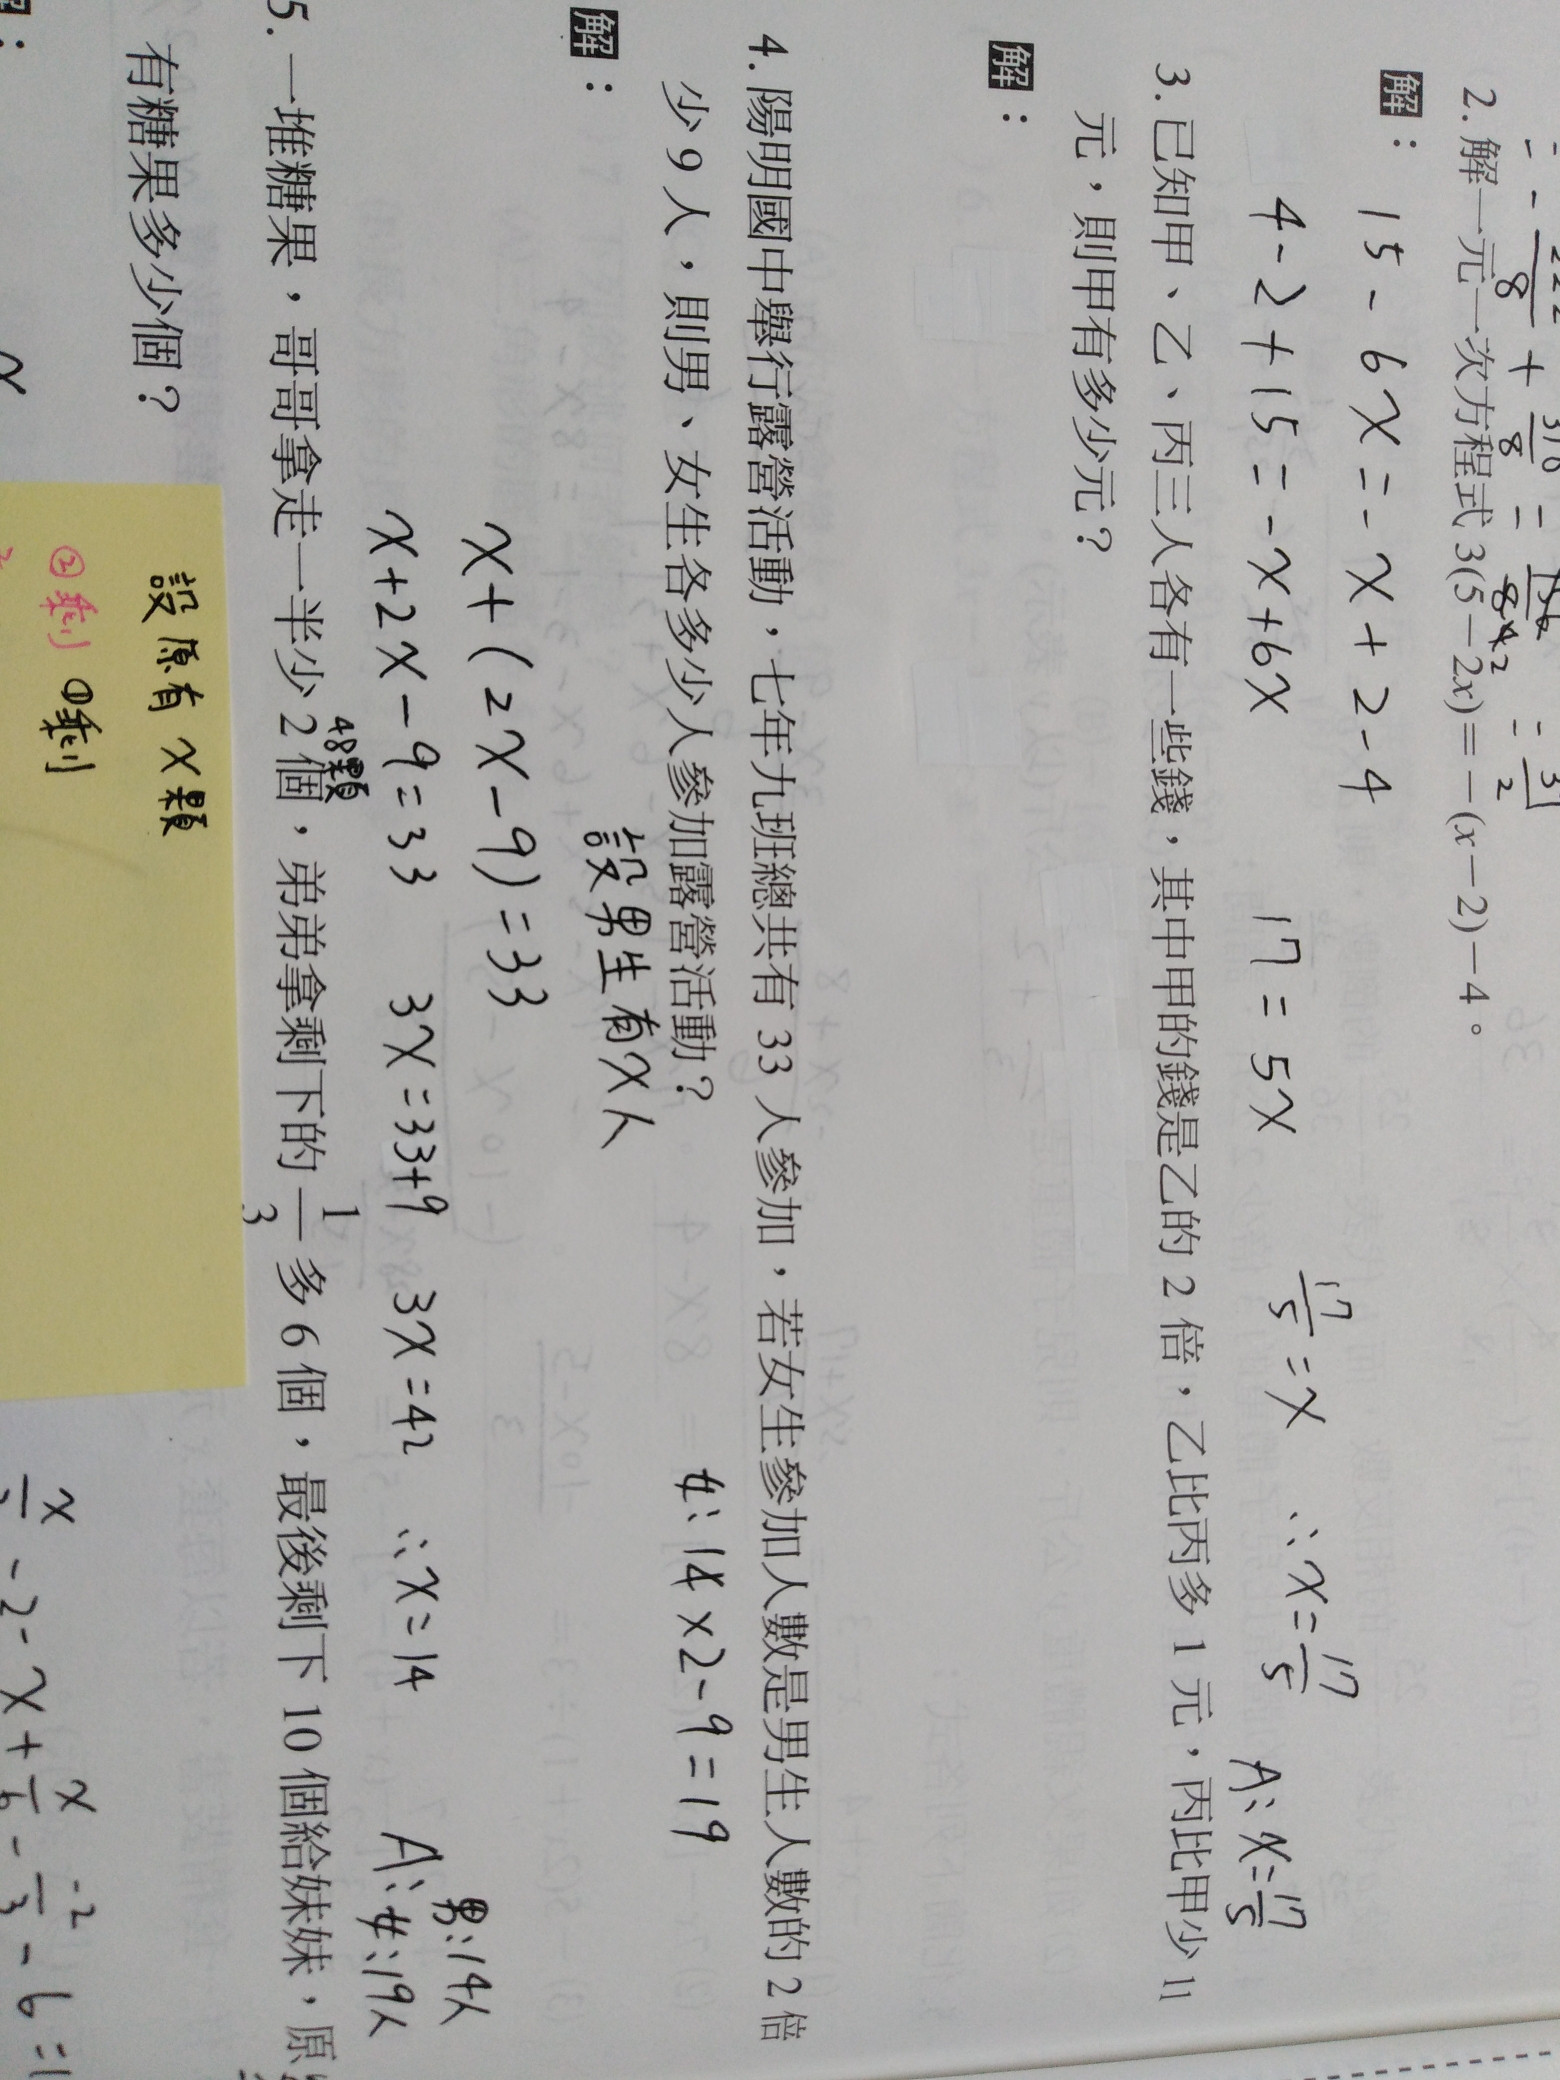 = - 222/8 + 378/8 = 156/8 = 39/2
2. 解一元一次方程式 3(5-2x)=-(x-2)-4。
解：
15-6x=-x+2-4
4-2+15=-x+6x 17=5x 17/5=x ∴x=17/5 A:x=17/5
3. 已知甲、乙、丙三人各有一些錢，其中甲的錢是乙的 2 倍，乙比丙多 1 元，丙比甲少 11
元，則甲有多少元？
解：
4. 陽明國中舉行露營活動，七年九班總共有 33 人參加，若女生參加人數是男生人數的 2 倍
少 9 人，則男、女生各多少人參加露營活動？
女:14×2-9=19
解：
設男生有x人
x+(2x-9)=33
x+2x-9=33 3x=33+9 3x=42 ∴x=14
男:14人
A:女:19人
48顆
5. 一堆糖果，哥哥拿走一半少 2 個，弟弟拿剩下的 1/3 多 6 個，最後剩下 10 個給妹妹，原
有糖果多少個？
設原有x顆
②剩 ①剩